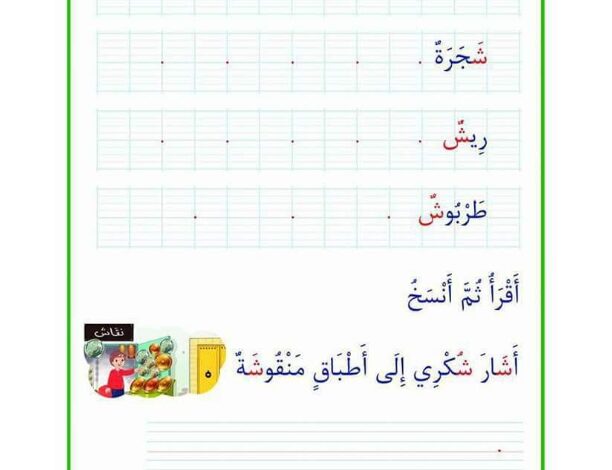 شَجَرَةٌ
رِيشٌ
طَرْبُوشٌ
أَقْرَأُ ثُمَّ أَنْسَخُ
نقاش
أَشَارَ شُكْرِي إِلَى أَطْبَاقٍ مَنْقُوشَةٌ
ه